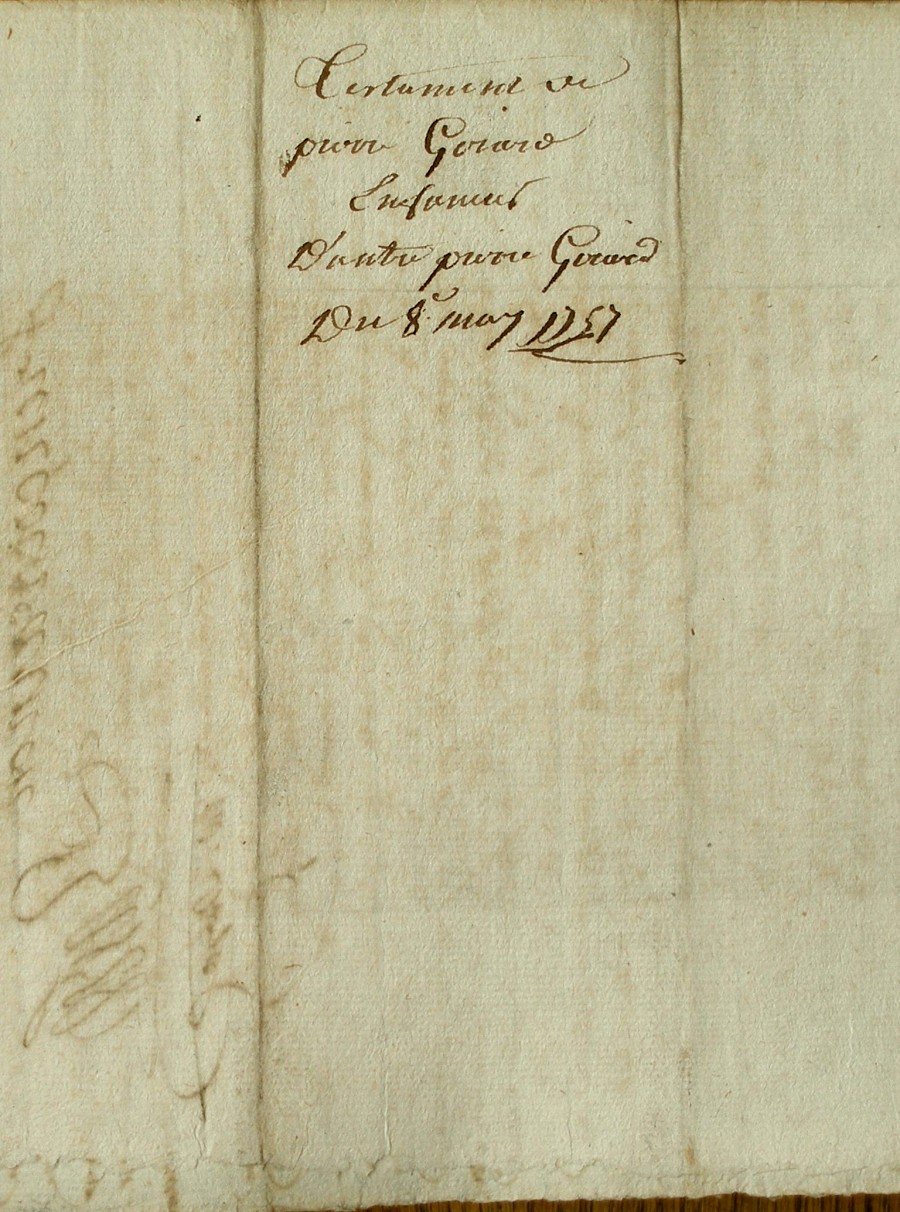 Testament de
pierre Girard
En faveur
D'autre pierre Girard
Du 8e may 1757